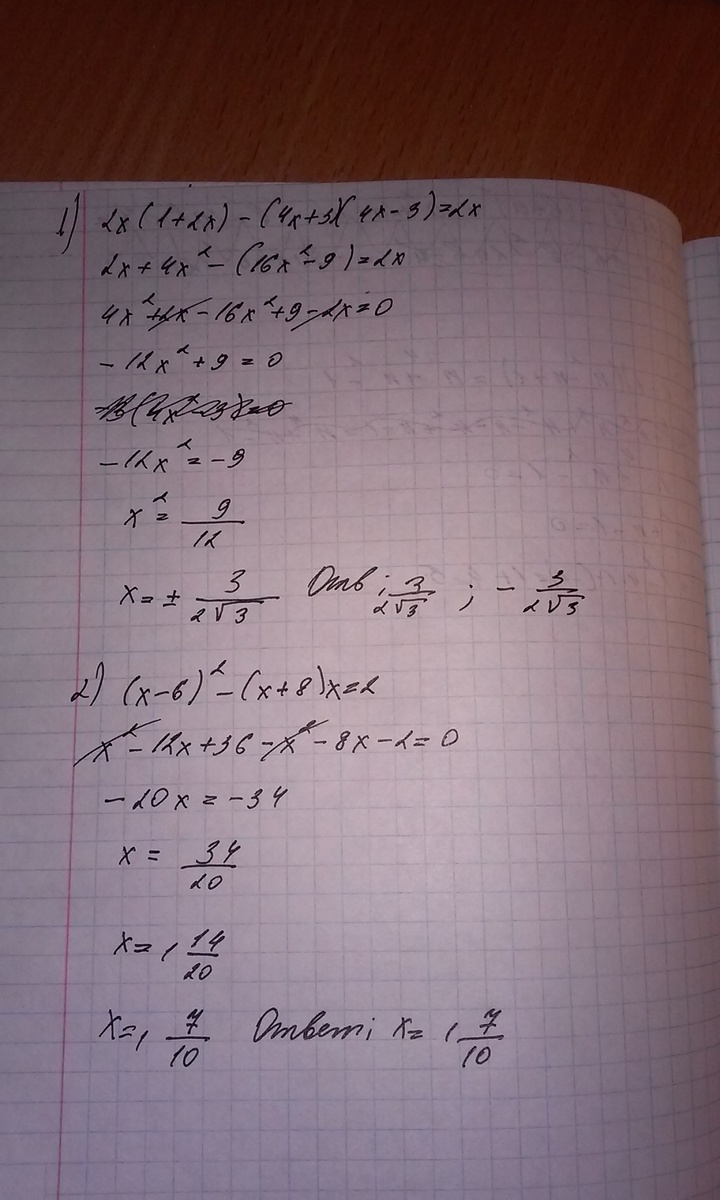 1) 2x(1+2x) - (4x+3)(4x-3)=2x
2x+4x² - (16x²-9)=2x
4x²+2x - 16x²+9-2x=0
-12x²+9=0
-12x²=-9
x²= 9/12
x=± 3/(2√3) Отв; 3/(2√3) ; - 3/(2√3)
2) (x-6)² - (x+8)x=2
x² - 12x+36 - x² - 8x - 2=0
-20x = -34
x = 34/20
x= 1 14/20
x= 1 7/10 Ответ; x= 1 7/10